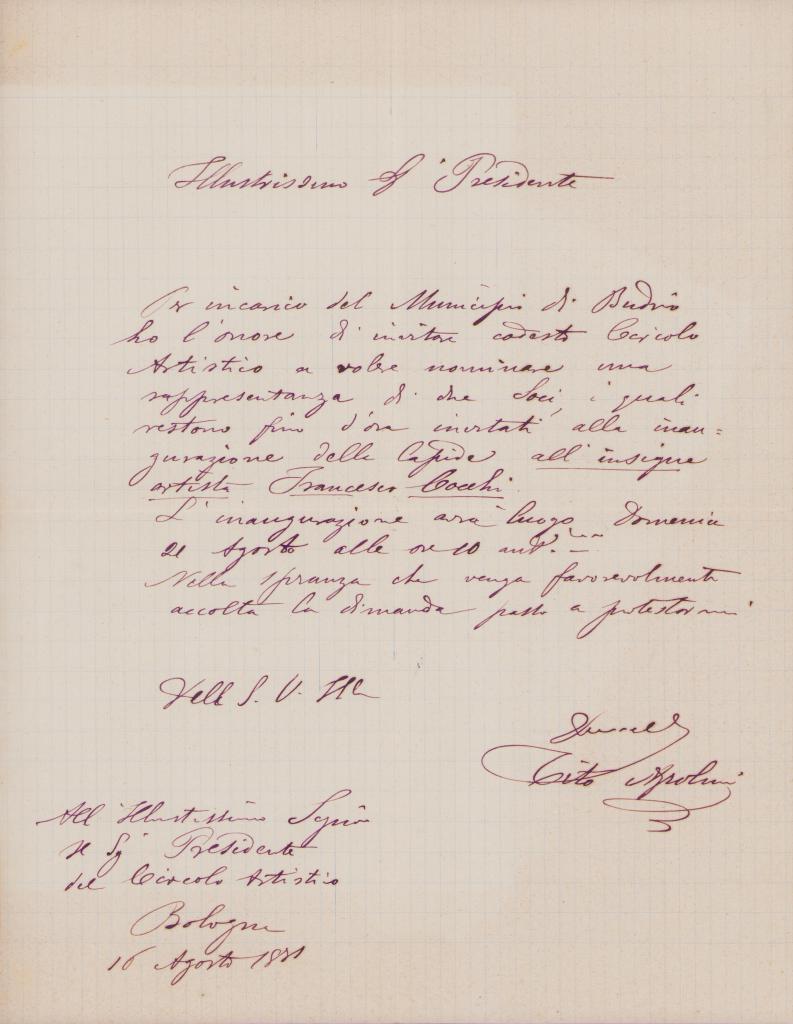 Illustrissimo Sig Presidente
Per incarico del Municipio di Budrio
ho l'onore di invitare codesto Circolo
Artistico a voler nominare una
rappresentanza di due Soci, i quali
restono fino d'ora invitati alla inau=
gurazione della lapide all'insigne
artista Francesco Cocchi.
L'inaugurazione avrà luogo Domenica
21 Agosto alle ore 10 ant.
Nella speranza che venga favorevolmente
accolta la dimanda passo a protestarmi
Della S. V. Ill
Tito Azzolini
All'Illustrissimo Signor
Presidente
del Circolo Artistico
Bologna
16 Agosto 1881